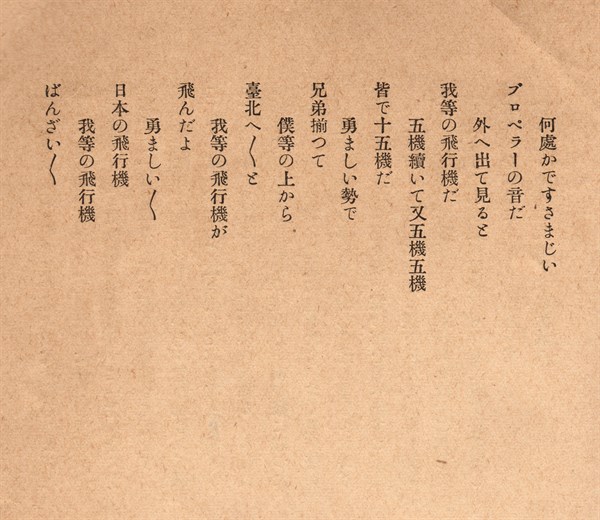 何處かですさまじい
プロペラーの音だ
外へ出て見ると
我等の飛行機だ
五機續いて又五機五機
皆で十五機だ
勇ましい勢で
兄弟揃つて
僕等の上から
臺北へ〳〵と
我等の飛行機が
飛んだよ
勇ましい〳〵
日本の飛行機
我等の飛行機
ばんざい〳〵